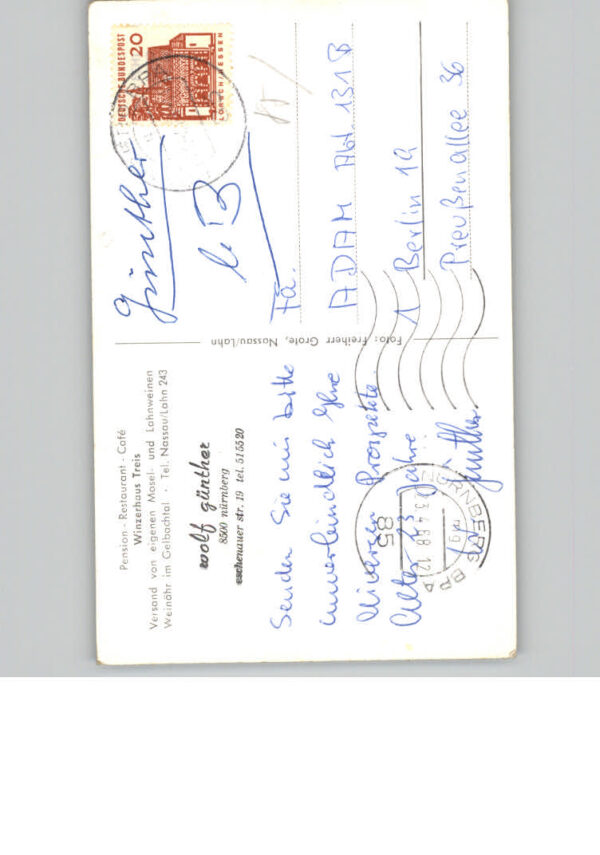 Pension - Restaurant - Café
Winzerhaus Treis
Versand von eigenen Mosel- und Lahnweinen
Weinähr im Gelbachtal · Tel. Nassau/Lahn 243
wolf günther
8500 nürnberg
eschenauer str. 19 tel. 515520
Senden Sie mir bitte
unverbindlich Ihre
diversen Prospekte.
Alter 23 Jahre
Günther.
NÜRNBERG BP
85
Foto: Freiherr Grote, Nassau/Lahn
DEUTSCHE BUNDESPOST
20
LORSCH/HESSEN
Günther
Fa.
ADAM Abt. 131 B
1 Berlin 19
Preußenallee 36